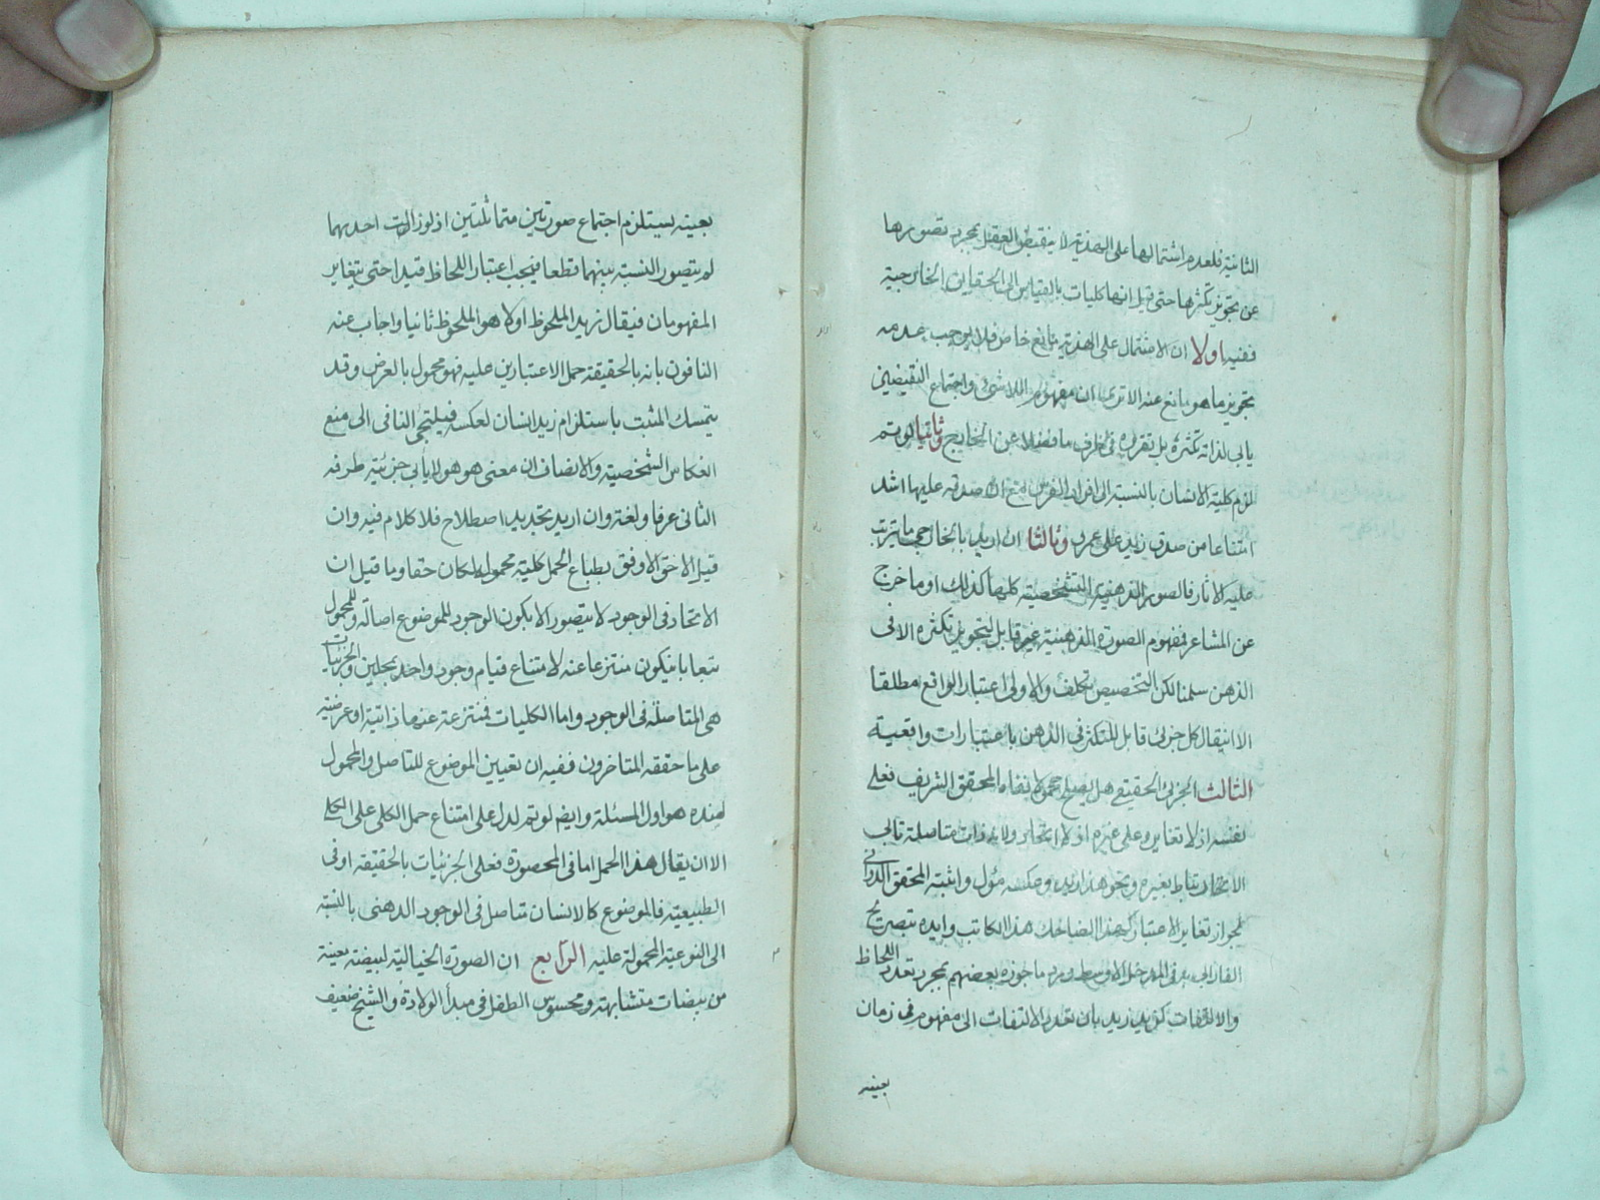 الثانية فلعدم اشتمالها على الهذية لا ينقبض العقل بمجرد تصورها
عن تجويز تكثرها حتى قيل انها كليات بالقياس الى الحقايق الخارجية
ففيه اولا ان الاشتمال على الهذية مانع خاص فلا يوجب عدمه
تجويز ما هو مانع عنه الا ترى ان مفهوم اللاشئ واجتماع النقيضين
يابى لذاته تكثره بل تقرره فى ظرف ما فضلا عن الخارج وثانيا لو تم
لزم كلية الانسان بالنسبة الى افراد الفرس مع ان صدقه عليها اشد
امتناعا من صدق زيد على عمرو وثالثا ان اريد بالخارجى ما يترتب
عليه الاثار فالصورة الذهنية الشخصية كلها كذلك او ما خرج
عن المشاعر فمفهوم الصورة الذهنية غير قابل لتجويز تكثره الا فى
الذهن سلمنا لكن التخصيص تكلف والاولى اعتبار الواقع مطلقا
الا ان يقال كل جزئى قابل للتكثر فى الذهن باعتبارات واقعية
الثالث الجزئى الحقيقى هل يصلح محمولا نفاه المحقق الشريف فعلى
نفسه اذ لا تغاير وعلى غيره اذ لا اتحاد ولانه ذات متاصلة تابى
الارتباط بغيره ونحو هذا زيد وعكسه مؤل واثبته المحقق الدوانى
لجواز تغاير الاعتبار كهذا الضاحك هذا الكاتب وايده بتصريح
الفارابى به فى المدخل الاوسط ورد ما جوزه بعضهم بمجرد تعدد اللحاظ
والالتفات كزيد زيد بان تعدد الالتفات الى مفهوم فى زمان
بعينه
بعينه يستلزم اجتماع صورتين متماثلتين اذ لو زالت احديهما
لم يتصور النسبة بينهما قطعا فيجب اعتبار اللحاظ قيدا حتى يتغاير
المفهومان فيقال زيد الملحوظ اولا هو الملحوظ ثانيا واجاب عنه
النافون بانه بالحقيقة حمل الاعتبارين عليه فهو محمول بالعرض وقد
يتمسك المثبت باستلزام زيد انسان لعكسه فيلتجى النافى الى منع
انعكاس الشخصية والانصاف ان معنى هو هو لا يابى جزئية طرفه
الثانى عرفا ولغة وان اريد تجديد اصطلاح فلا كلام فيه وان
قيل الاخق الاوفق بطباع الحمل كلية محموله لكان حقا وما قيل ان
الاتحاد فى الوجود لا يتصور الا بكون الوجود للموضوع اصالة وللمحمول
تبعا بان يكون منتزعا عنه لامتناع قيام وجود واحد بمحلين والجزئيات
هى المتاصلة فى الوجود واما الكليات فمنتزعة عنها ذاتية او عرضية
على ما حققه المتاخرون ففيه ان تعيين الموضوع للتاصل والمحمول
لضده هو اول المسئلة وايضا لو تم لدل على امتناع حمل الكلى على الكلى
الا ان يقال هذا الحمل اما فى المحصورة فعلى الجزئيات بالحقيقة او فى
الطبيعية فالموضوع كالانسان متاصل فى الوجود الذهنى بالنسبة
الى النوعية المحمولة عليه الرابع ان الصورة الخيالية لبيضة بعينه
من بيضات متشابهة ومحسوس الطفل فى مبدأ الولادة والشيخ ضعيف